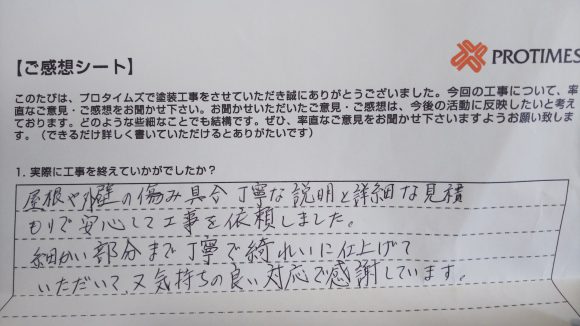 PROTIMES
【ご感想シート】
このたびは、プロタイムズで塗装工事をさせていただき誠にありがとうございました。今回の工事について、率
直なご意見・ご感想をお聞かせ下さい。お聞かせいただいたご意見・ご感想は、今後の活動に反映したいと考え
ております。どのような些細なことでも結構です。ぜひ、率直なご意見をお聞かせ下さいますようお願い致しま
す。（できるだけ詳しく書いていただけるとありがたいです）
1. 実際に工事を終えていかがでしたか？
屋根や外壁の傷み具合 丁寧な説明と詳細な見積
もりで安心して工事を依頼しました。
細かい部分まで丁寧で綺れいに仕上げて
いただいて、又気持ちの良い対応で感謝しています。